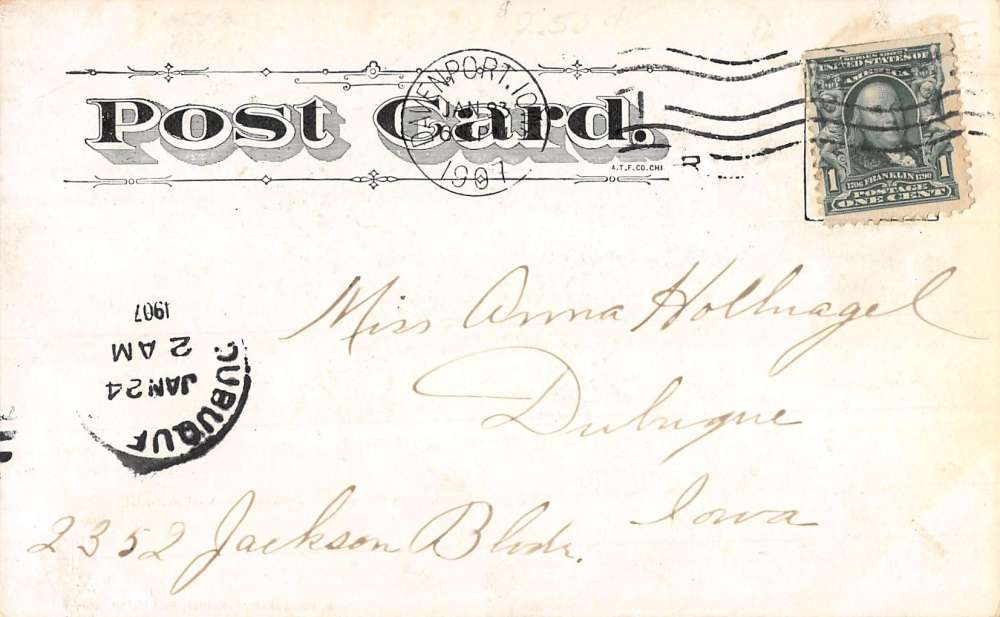 Post Card.
A.T.F. CO. CHI
DAVENPORT, IOWA
JAN 23
1907
UNITED STATES OF
AMERICA
1 1706 FRANKLIN 1790 1
POSTAGE
ONE CENT
Miss Anna Hollnagel
Dubuque
Iowa
2352 Jackson Blvdr.
DUBUQUE
JAN 24
2 AM
1907